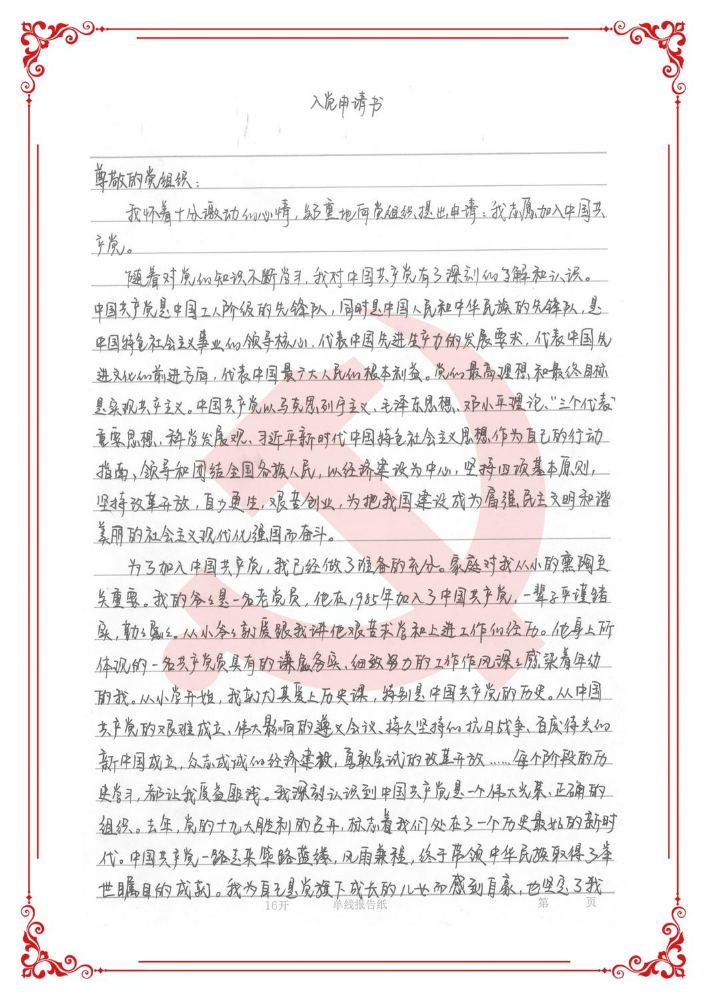 入党申请书
尊敬的党组织：
我怀着十分激动的心情，郑重地向党组织提出申请：我志愿加入中国共
产党。
随着对党的知识不断学习，我对中国共产党有了深刻的了解和认识。
中国共产党是中国工人阶级的先锋队，同时是中国人民和中华民族的先锋队，是
中国特色社会主义事业的领导核心，代表中国先进生产力的发展要求，代表中国先
进文化的前进方向，代表中国最广大人民的根本利益。党的最高理想和最终目标
是实现共产主义。中国共产党以马克思列宁主义、毛泽东思想、邓小平理论、“三个代表”
重要思想、科学发展观、习近平新时代中国特色社会主义思想作为自己的行动
指南，领导和团结全国各族人民，以经济建设为中心，坚持四项基本原则，
坚持改革开放，自力更生，艰苦创业，为把我国建设成为富强民主文明和谐
美丽的社会主义现代化强国而奋斗。
为了加入中国共产党，我已经做了准备的充分。家庭对我从小的熏陶至
关重要。我的爷爷是一名老党员，他在1985年加入了中国共产党，一辈子平谨踏
实，勤勤恳恳。从小爷爷就爱跟我讲他艰苦求学和上进工作的经历。他身上所
体现的一名共产党员具有的谦虚务实、细致努力的工作作风深深感染着年幼
的我。从小学开始，我就尤其爱上历史课，特别是中国共产党的历史。从中国
共产党的艰难成立、伟大影响的遵义会议、持久坚持的抗日战争、百废待兴的
新中国成立，众志成诚的经济建设，勇敢尝试的改革开放……每个阶段的历
史学习，都让我受益匪浅。我深刻认识到中国共产党是一个伟大光荣、正确的
组织。去年，党的十九大胜利的召开，标志着我们处在了一个历史最好的新时
代。中国共产党一路走来筚路蓝缕，风雨兼程，终于带领中华民族取得了举
世瞩目的成就。我为自己是党旗下成长的儿女而感到自豪，也坚定了我
16开 单线报告纸 第 页